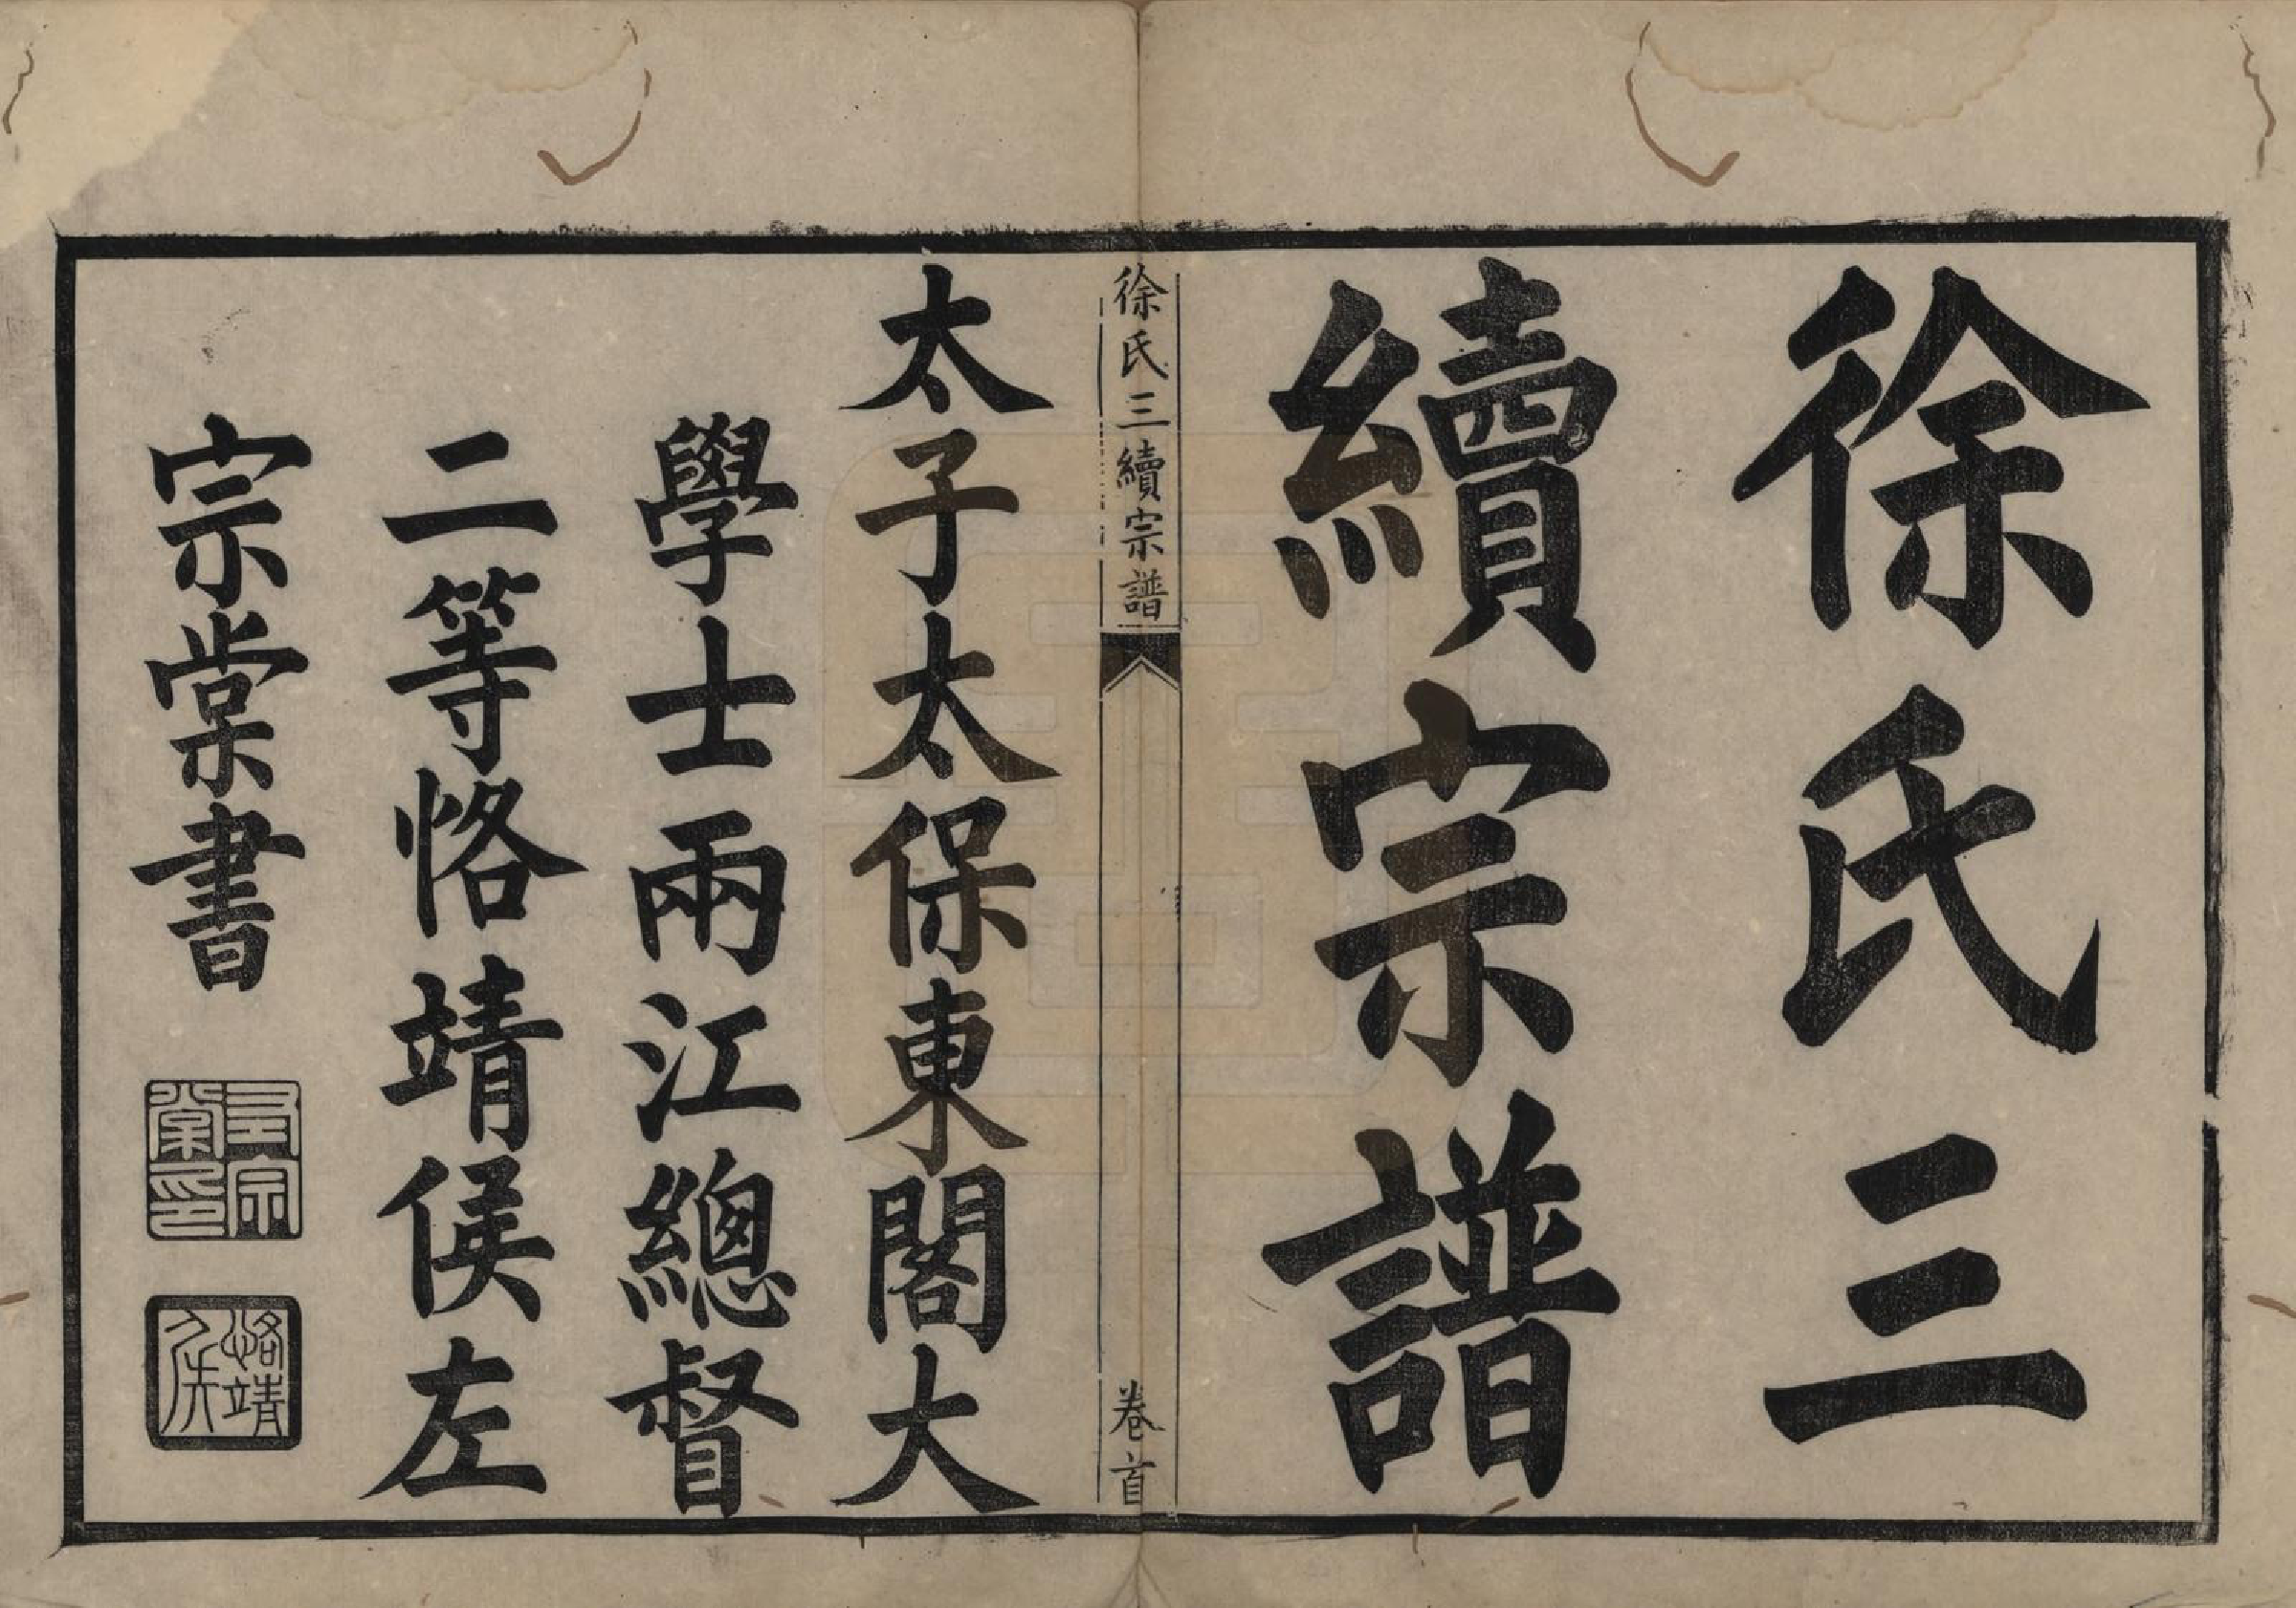 徐氏三
續宗譜
徐氏三續宗譜
卷首
太子太保東閣大
學士兩江總督
二等恪靖侯左
宗棠書
左宗棠印
恪靖侯